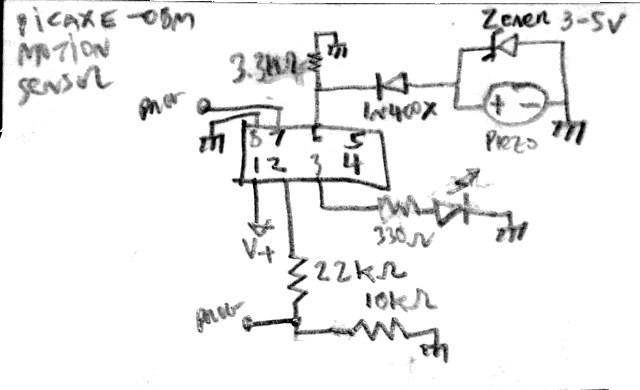 PICAXE-08M
MOTION
SENSOR
Zener 3-5V
3.3MΩ
1N400X
Piezo
8 7 6 5
1 2 3 4
330Ω
V+
22kΩ
10kΩ